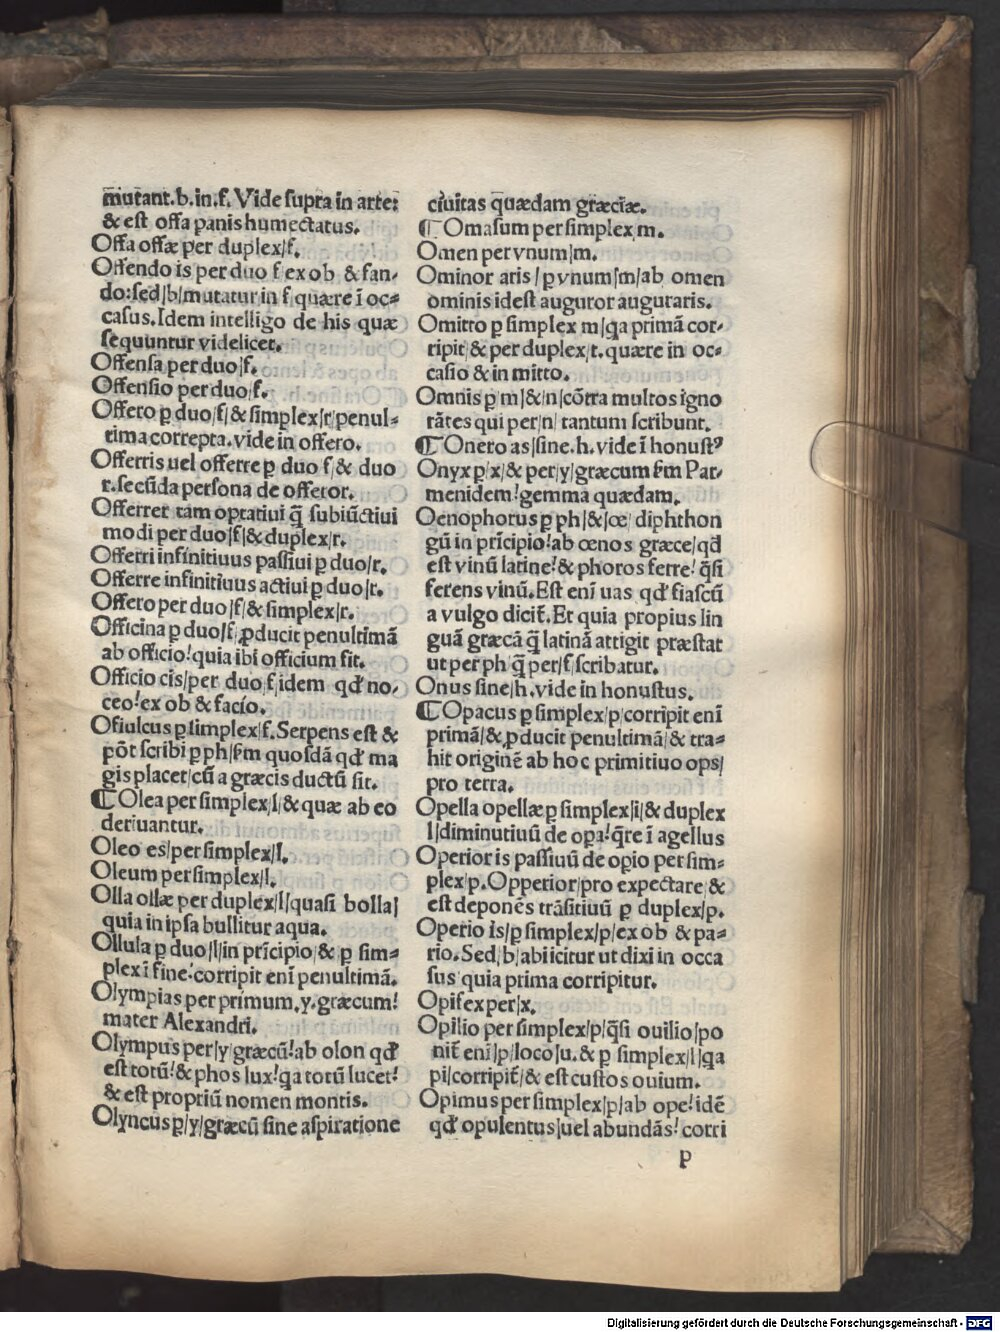 mutant.b.in.f. Vide supra in arte:
& est offa panis humectatus.
Offa offæ per duplex|f.
Offendo is per duo f ex ob & fan-
do:sed|b|mutatur in f quære ī oc=
casus. Idem intelligo de his quæ
sequuntur videlicet.
Offensa per duo|f.
Offensio per duo|f.
Offero ꝑ duo|f|& simplex|r|penul=
tima correpta. vide in offero.
Offerris uel offerre ꝑ duo f|& duo
r. secūda persona de offeror.
Offerrer tam optatiui q̄ subiūctiui
modi per duo|f|& duplex|r.
Offerri infinitiuus passiui ꝑ duo|r.
Offerre infinitiuus actiui ꝑ duo|r.
Offero per duo|f|& simplex|r.
Officina ꝑ duo|f. ꝓducit penultimā
ab officio! quia ibi officium fit.
Officio cis|per duo f|idem qđ no-
ceo! ex ob & facio.
Ofiulcus ꝑ simplex|f. Serpens est &
pōt scribi ꝑ ph|s̄m quosdā qđ ma
gis placet|cū a græcis ductū sit.
¶ Olea per simplex|l|& quæ ab eo
deriuantur.
Oleo es|per simplex|l.
Oleum per simplex|l.
Olla ollæ per duplex|l|quasi bolla|
quia in ipsa bullitur aqua.
Ollula ꝑ duo|l|in prīcipio|& ꝑ sim=
plex ī fine! corripit enī penultimā.
Olympias per primum. y. græcum!
mater Alexandri.
Olympus per|y|græcū! ab olon qđ
est totū! & phos lux! q̱a totū lucet!
& est propriū nomen montis.
Olyncus ꝑ|y|græcū sine aspiratione
ciuitas quædam græciæ.
¶ Omasum per simplex m.
Omen per vnum|m.
Ominor aris| ꝑ vnum|m|ab omen
ominis idest auguror auguraris.
Omitto ꝑ simplex m|q̱a primā cor-
ripit|& per duplex|t. quære in oc=
casio & in mitto.
Omnis ꝑ m|&|n|cōtra multos igno
rātes qui per|n| tantum scribunt.
¶ Onero as|sine.h. vide ī honustꝰ
Onyx ꝑ|x|& per|y|græcum s̄m Par-
menidem! gemma quædam.
Oenophorus ꝑ ph|&|œ| diphthon
gū in prīcipio! ab œnos græce|qđ
est vinū latine! & phoros ferre! q̄si
ferens vinū. Est enī uas qđ fiascū
a vulgo dicit̄. Et quia propius lin
guā græcā q̄ latinā attigit præstat
ut per ph q̄ per|f|scribatur.
Onus sine|h. vide in honustus.
¶ Opacus ꝑ simplex|p|corripit enī
primā|&. ꝓducit penultimā|& tra=
hit originē ab hoc primitiuo ops|
pro terra.
Opella opellæ ꝑ simplex|i|& duplex
l|diminutiuū de opa! q̄re ī agellus
Operior is passiuū de opio per sim=
plex|p. Opperior|pro expectare|&
est deponēs trāsitiuū ꝑ duplex|p.
Operio is|ꝑ simplex|p|ex ob & pa=
rio. Sed|b|abiicitur ut dixi in occa
sus quia prima corripitur.
Opifex per|x.
Opilio per simplex|p|q̄si ouilio|po
nit̄ enī|p|loco|u. & ꝑ simplex|l|q̱a
pi|corripit̄|& est custos ouium.
Opimus per simplex|p|ab ope! idē
qđ opulentus|uel abundās! corri
p
Digitalisierung gefördert durch die Deutsche Forschungsgemeinschaft - DFG